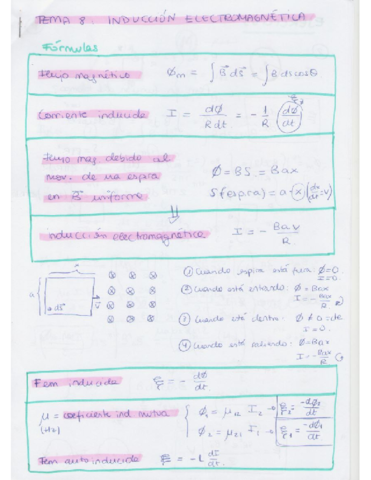 TEMA 8 INDUCCIÓN ELECTROMAGNÉTICA
Fórmulas
Flujo magnético Φm = ∫ B⃗ ds⃗ = ∫ B ds cosθ
Corriente inducida I = dΦ/Rdt = - 1/R (dΦ/dt)
Flujo mag debido al
mov. de una espira
en B⃗ uniforme
Φ = BS = Bax
S(espira) = a·x (dx/dt = v)
Inducción electromagnética I = - Bav/R
① Cuando espira está fuera: Φ=0.
I=0.
② Cuando está entrando: Φ=Bax
③ Cuando está dentro: Φ ≠ 0 = cte
I=0.
④ Cuando está saliendo: Φ=Bax
Fem inducida ξ = - dΦ/dt
μ = coeficiente ind mutua
Φ1 = μ12 I2 → ξ1 = -dΦ1/dt
Φ2 = μ21 I1 →
Fem autoinducida ξ = -L dI/dt.